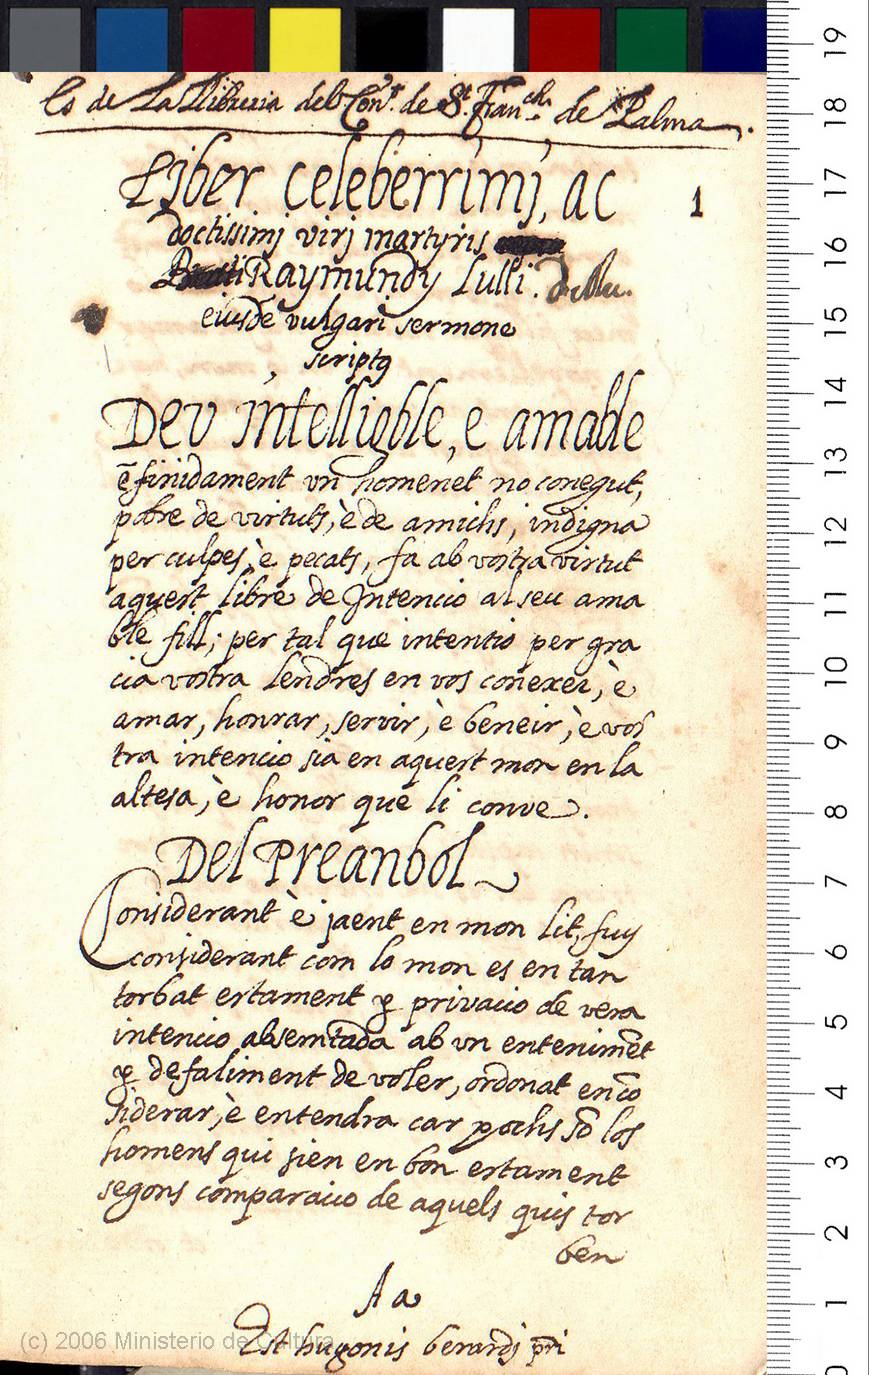 Es de La Llibreria del Con.t de S.t Fran.ch de Palma.
1
Liber celeberrimj, ac
doctissimj virj martyris
Raymundy Lulli.
eiusdē vulgari sermone
scriptꝰ
Deu intelligble, e amable
ēfinidament vn homenet no conegut,
pobre de virtuts, è de amichs, indigna
per culpes, è pecats, fa ab vostra virtut
aquest libre de Intencio al seu ama
ble fill; per tal que intentio per gra
cia vostra lendres en vos conexer, è
amar, honrar, servir, è beneir, è vos
tra intencio sia en aquest mon en la
altesa, è honor que li conve.
Del Preanbol
Considerant è jaent en mon lit, fuy
considerant com lo mon es en tan
torbat estament ꝑ privacio de vera
intencio absemtada ab vn entenimēt
ꝑ defaliment de voler, ordonat en cō
siderar, è entendra car pochs sō los
homens qui sien en bon estament
segons comparacio de aquels quis tor
ben
A a
Est hugonis berardj pri
(c) 2006 Ministerio de Cultura
19
18
17
16
15
14
13
12
11
10
9
8
7
6
5
4
3
2
1
0